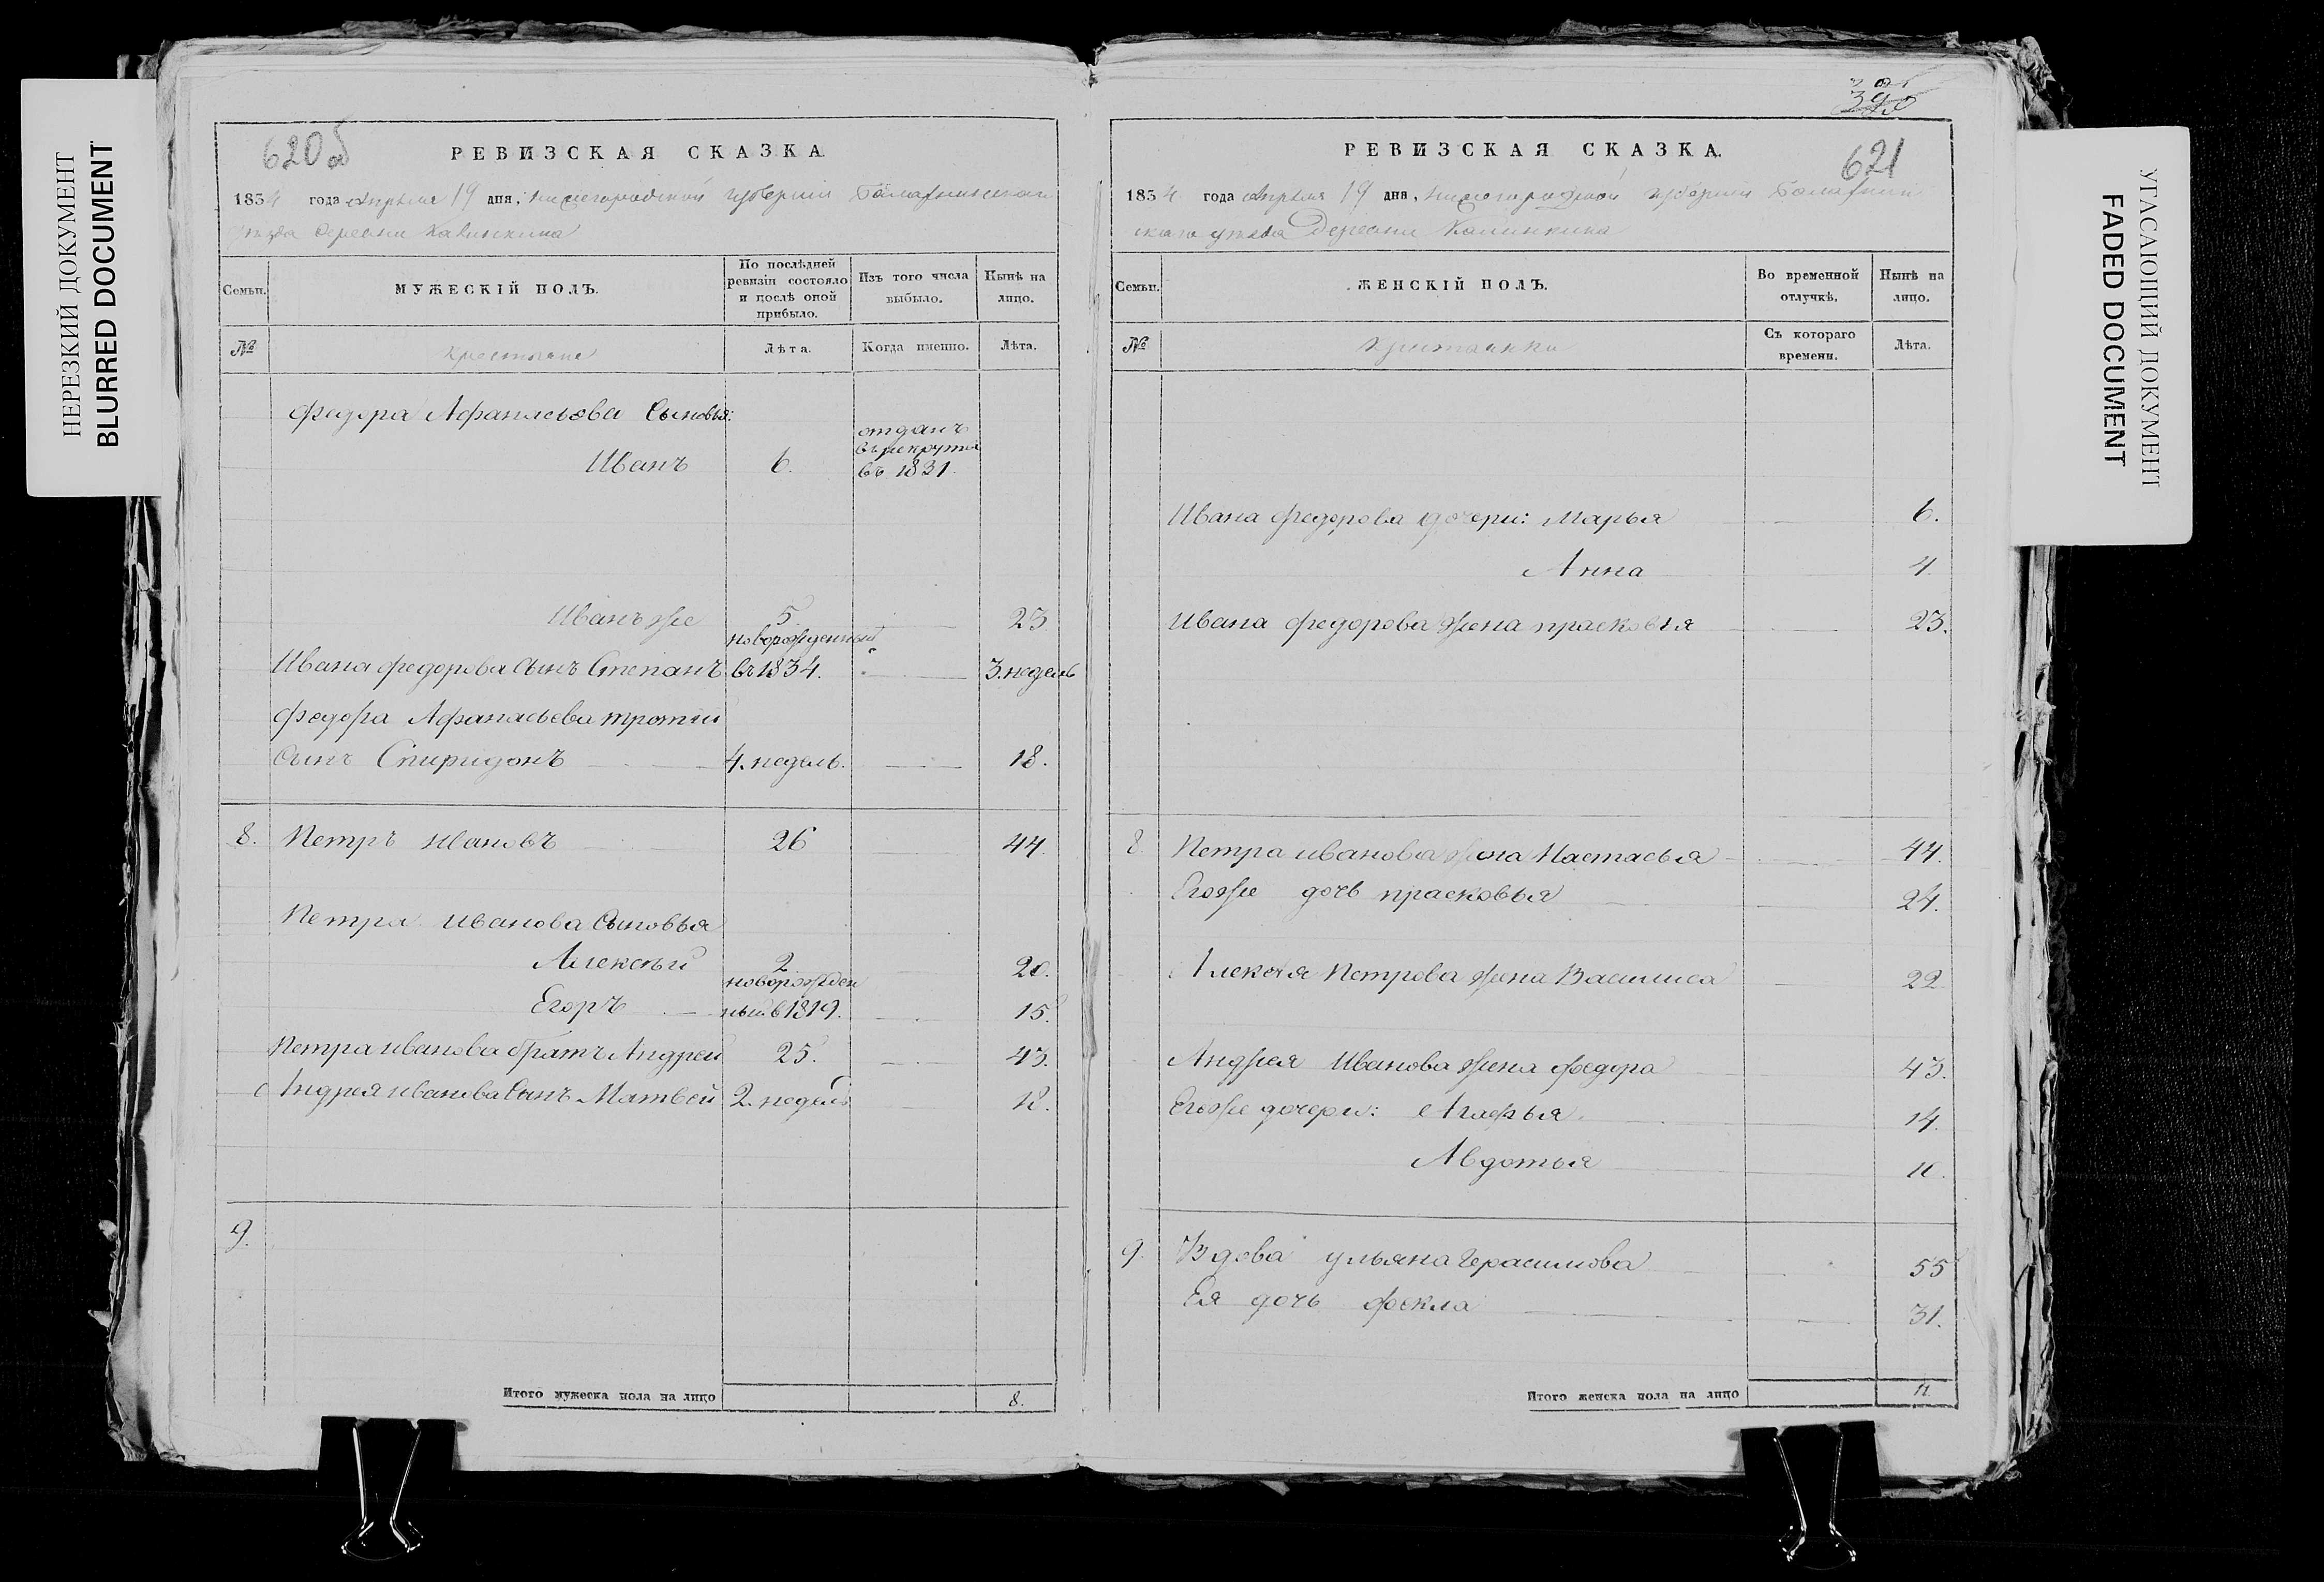 НЕРЕЗКИЙ ДОКУМЕНТ
BLURRED DOCUMENT
620об
РЕВИЗСКАЯ СКАЗКА.
1834 года Апреля 19 дня, Нижегородской губернии Балахнинскаго
уезда деревни Калинкина
Семьи.
МУЖЕСКІЙ ПОЛЪ.
По послѣдней ревизіи состояло и послѣ оной прибыло.
Изъ того числа выбыло.
Нынѣ на лицо.
№
Крестьяне
Лѣта.
Когда именно.
Лѣта.
Федора Афанасьева Сыновья:
Иванъ 6. отданъ въ рекруты въ 1831.
Иванъ же 5. 23
Ивана федорова сынъ Степанъ новорожденный въ 1834. 3. недель
Федора Афанасьева третий
сынъ Спиридонъ 4. недель. 18.
8. Петръ Ивановъ 26 44.
Петра Иванова Сыновья
Алексѣй 2. 20.
Егоръ новорожденный в 1819. 15.
Петра Иванова братъ Андрей 25. 43.
Андрея Иванова Сынъ Матвей 2. недель 18.
9.
Итого мужеска пола на лицо 8.
621
РЕВИЗСКАЯ СКАЗКА.
1834 года Апреля 19 дня, Нижегородской губернии Балахнин
скаго уезда Деревни Калинкина
Семьи.
ЖЕНСКІЙ ПОЛЪ.
Во временной отлучкѣ.
Нынѣ на лицо.
№
Крестьянки
Съ котораго времени.
Лѣта.
Ивана федорова дочери: Марья 6.
Анна 4.
Ивана федорова жена прасковья 23.
8. Петра иванова жена Настасья 44.
Егоже дочь прасковья 24.
Алексѣя Петрова жена Василиса 22
Андрея Иванова жена федора 43.
Егоже дочери: Агафья 14.
Авдотья 11.
9. Вдова ульяна Герасимова 55
Ея дочь фекла 31.
Итого женска пола на лицо 11.
УГАСАЮЩИЙ ДОКУМЕНТ
FADED DOCUMENT